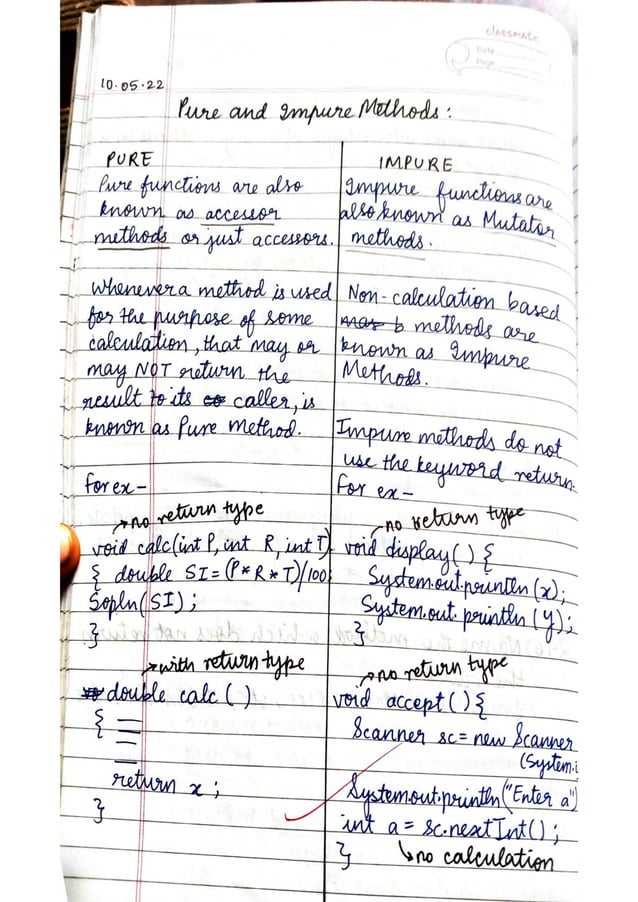 classmate
Date
Page
10.05.22
Pure and Impure Methods:
PURE
Pure functions are also
known as accessor
methods or just accessors.
Whenever a method is used
for the purpose of some
calculation, that may or
may NOT return the
result to its caller, is
known as Pure method.
for ex-
no return type
void calc(int P, int R, int T)
{ double SI = (P*R*T)/100;
Sopln(SI);
}
with return type
double calc()
{
return x;
}
IMPURE
Impure functions are
also known as Mutator
methods.
Non-calculation based
methods are
known as Impure
Methods.
Impure methods do not
use the keyword return.
For ex-
no return type
void display() {
System.out.println(x);
System.out.println(y);
}
no return type
void accept() {
Scanner sc = new Scanner
(System.i
System.out.println("Enter a")
int a = sc.nextInt();
} no calculation